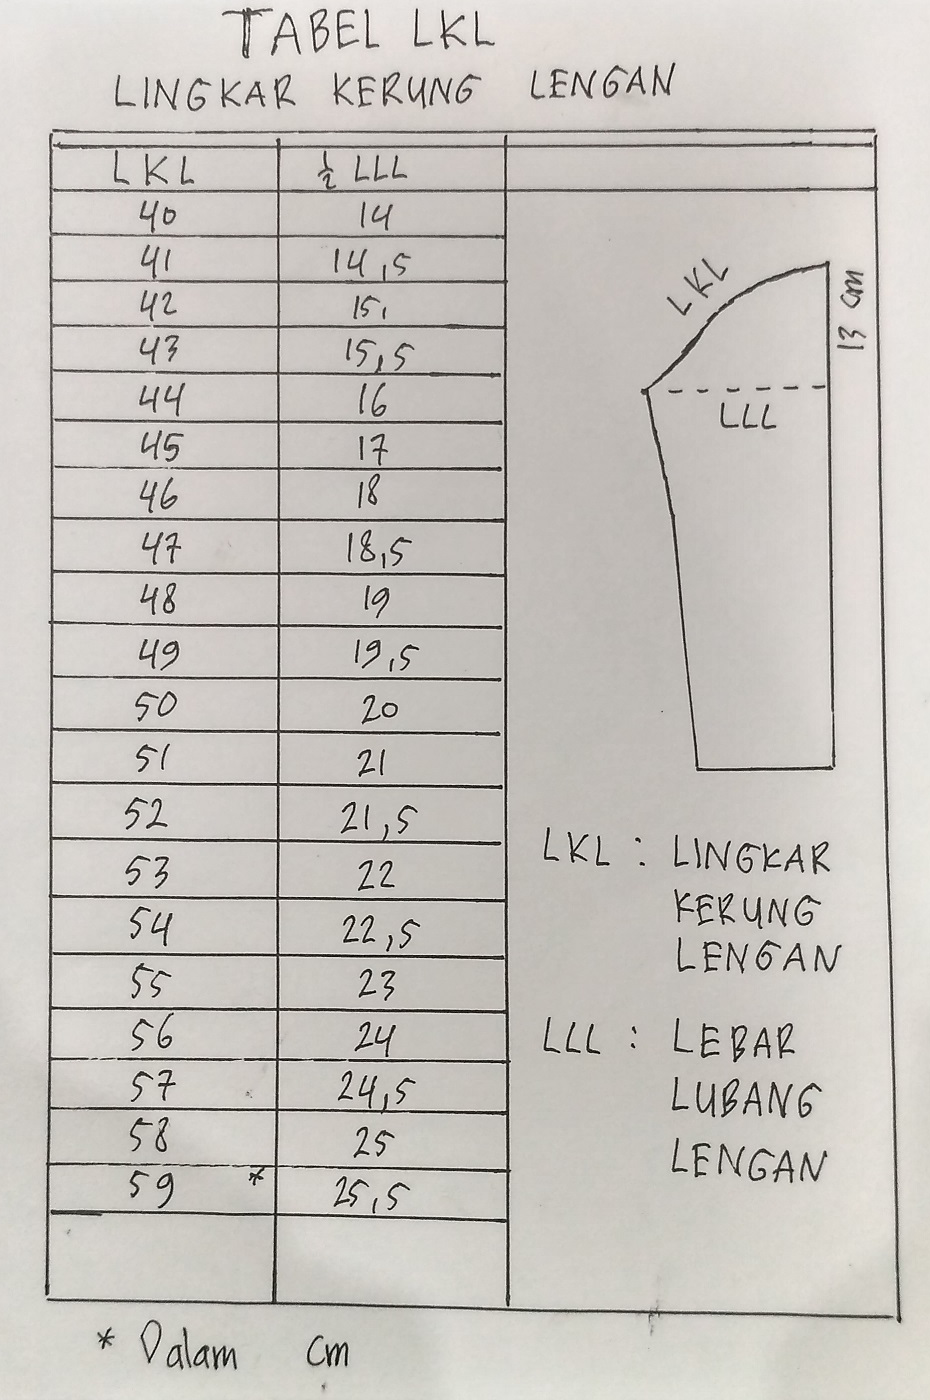 TABEL LKL
LINGKAR KERUNG LENGAN
LKL ½ LLL
40 14
41 14,5
42 15,
43 15,5
44 16
45 17
46 18
47 18,5
48 19
49 19,5
50 20
51 21
52 21,5
53 22
54 22,5
55 23
56 24
57 24,5
58 25
59 * 25,5
LKL
13 cm
LLL
LKL : LINGKAR
KERUNG
LENGAN
LLL : LEBAR
LUBANG
LENGAN
* Dalam cm